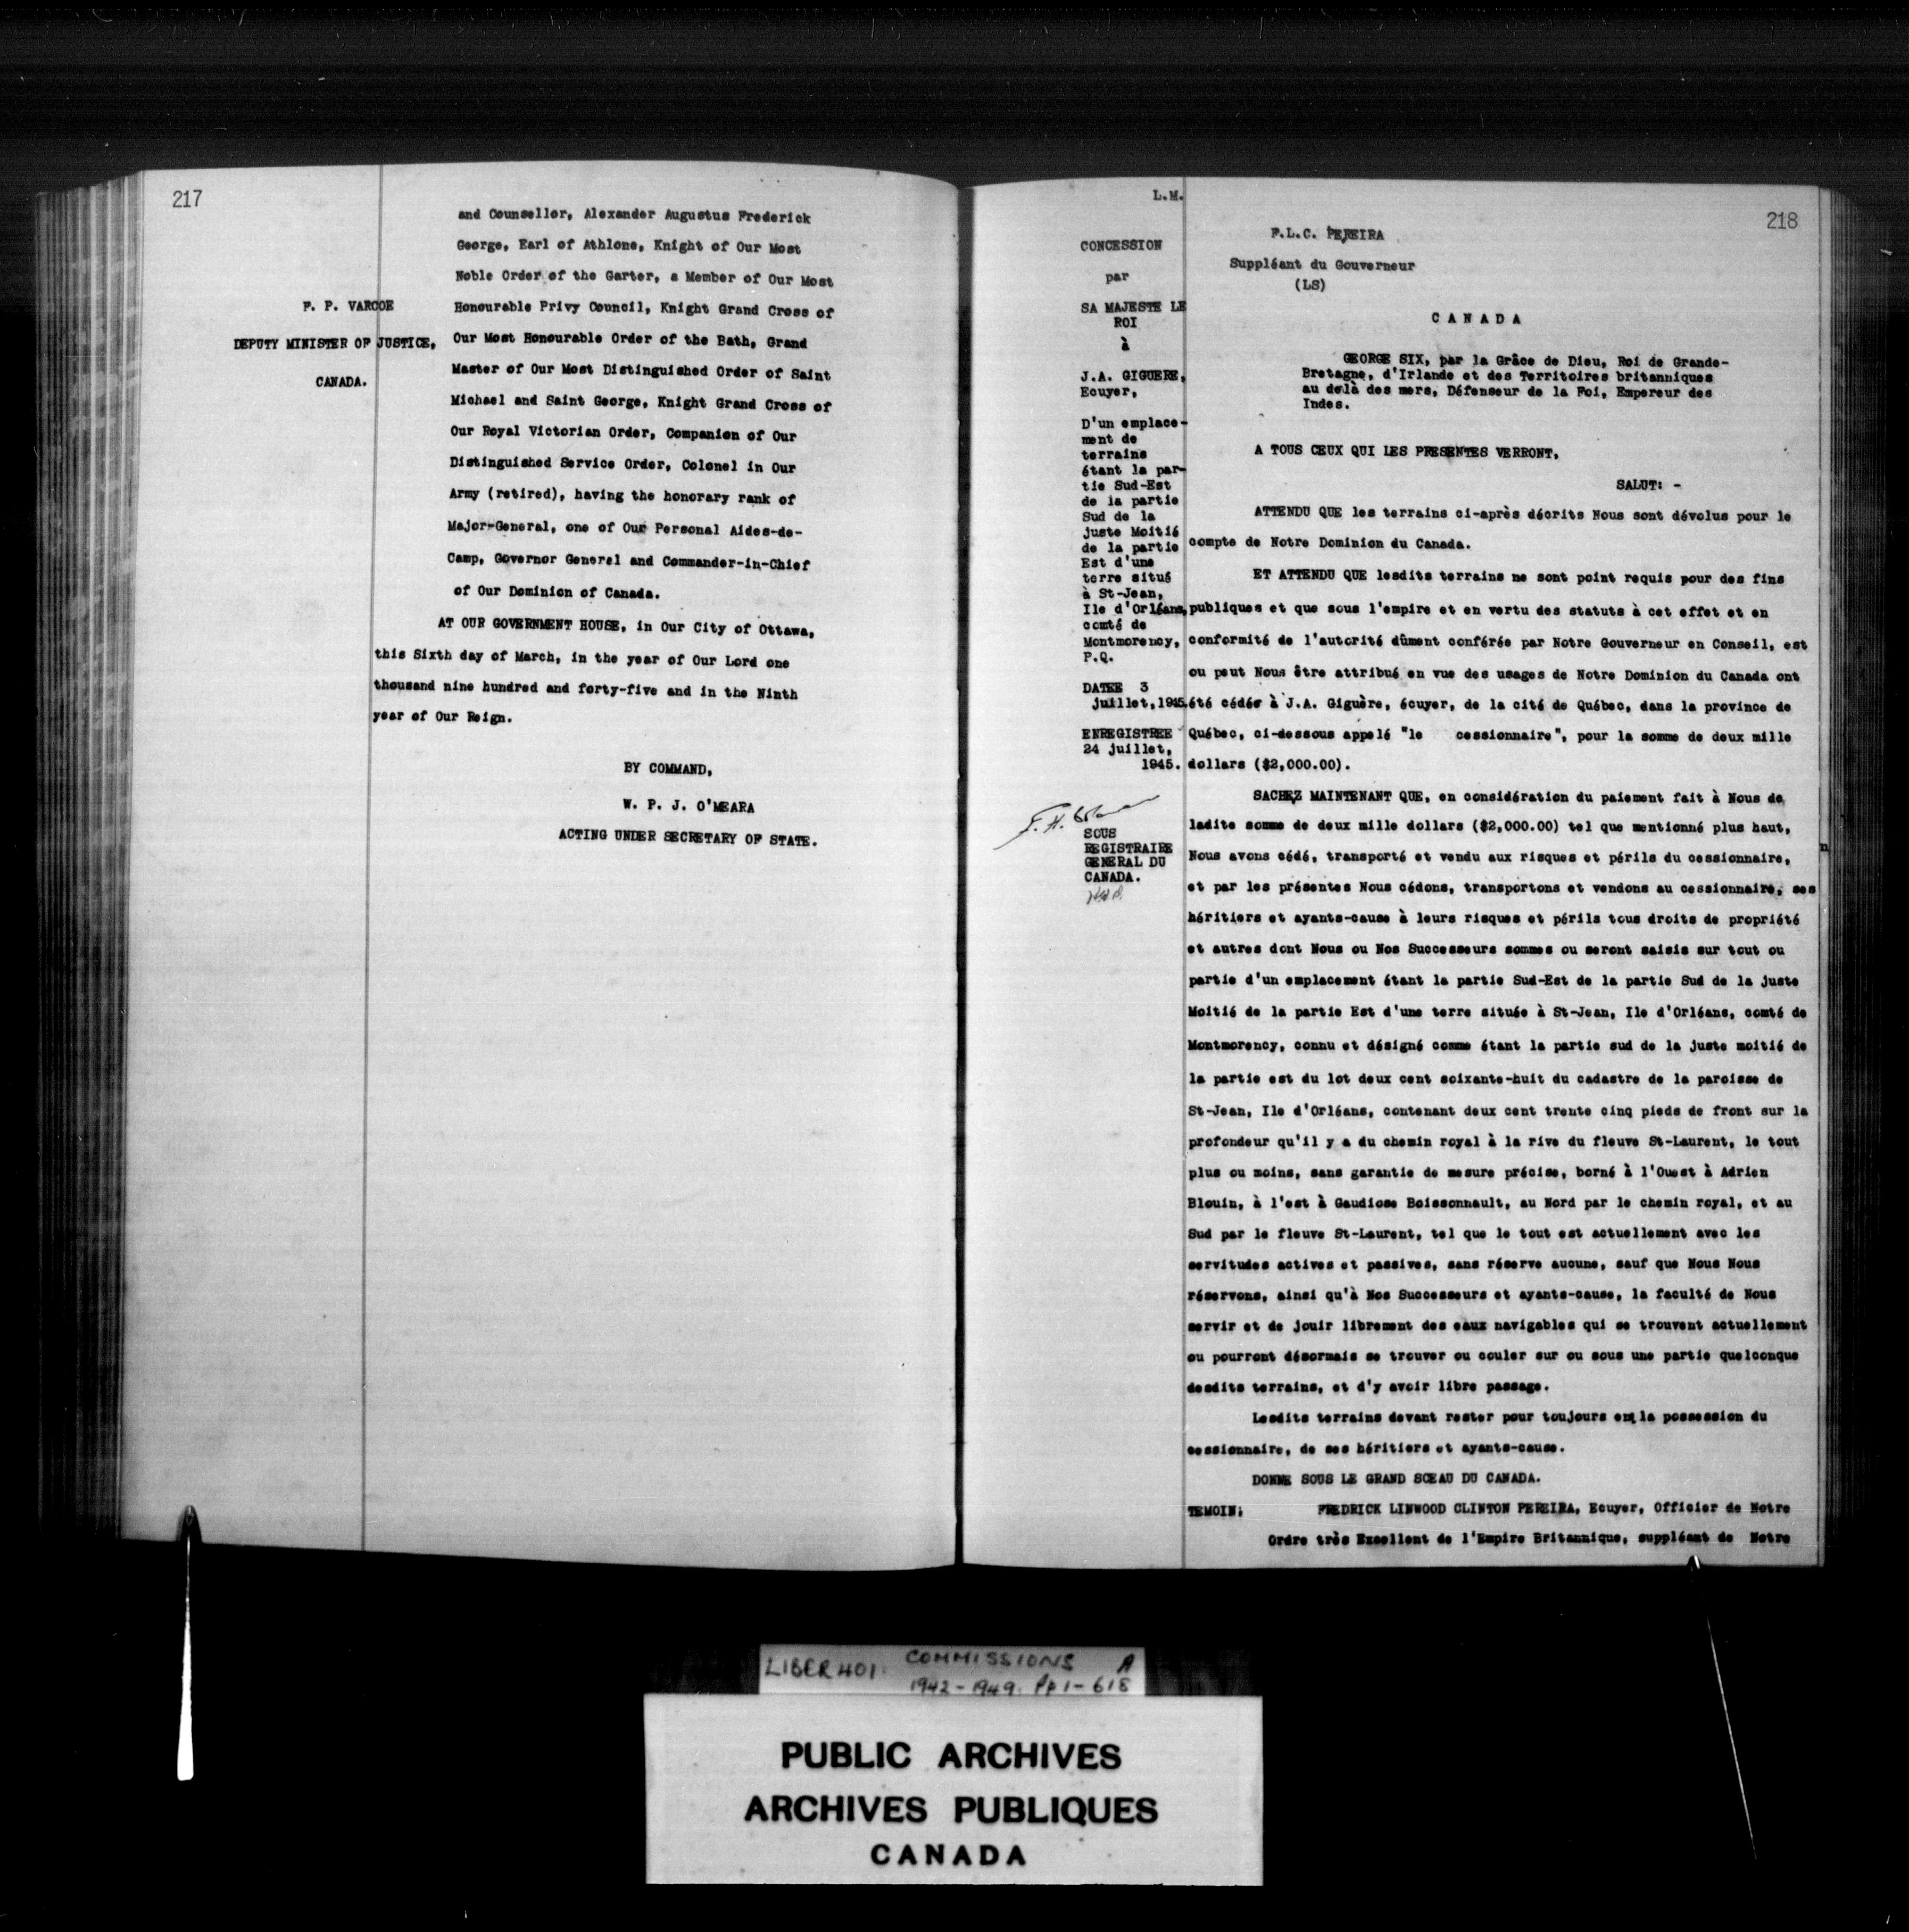 217
and Counsellor, Alexander Augustus Frederick
George, Earl of Athlone, Knight of Our Most
Noble Order of the Garter, a Member of Our Most
Honourable Privy Council, Knight Grand Cross of
Our Most Honourable Order of the Bath, Grand
Master of Our Most Distinguished Order of Saint
Michael and Saint George, Knight Grand Cross of
Our Royal Victorian Order, Companion of Our
Distinguished Service Order, Colonel in Our
Army (retired), having the honorary rank of
Major-General, one of Our Personal Aides-de-
Camp, Governor General and Commander-in-Chief
of Our Dominion of Canada.
F. P. VARCOE
DEPUTY MINISTER OF JUSTICE,
CANADA.
AT OUR GOVERNMENT HOUSE, in Our City of Ottawa,
this Sixth day of March, in the year of Our Lord one
thousand nine hundred and forty-five and in the Ninth
year of Our Reign.
BY COMMAND,
W. P. J. O'MEARA
ACTING UNDER SECRETARY OF STATE.
L.M.
218
CONCESSION
par
SA MAJESTE LE
ROI
à
J.A. GIGUERE,
Ecuyer,
D'un emplace-
ment de
terrains
étant la par-
tie Sud-Est
de la partie
Sud de la
juste Moitié
de la partie
Est d'une
terre situé
à St-Jean,
Ile d'Orléans,
comté de
Montmorency,
P.Q.
DATEE 3
juillet,1945.
ENREGISTREE
24 juillet,
1945.
F. H.
SOUS
REGISTRAIRE
GENERAL DU
CANADA.
F.L.C. PEREIRA
Suppléant du Gouverneur
(LS)
C A N A D A
GEORGE SIX, par la Grâce de Dieu, Roi de Grande-
Bretagne, d'Irlande et des Territoires britanniques
au delà des mers, Défenseur de la Foi, Empereur des
Indes.
A TOUS CEUX QUI LES PRESENTES VERRONT,
SALUT: -
ATTENDU QUE les terrains ci-après décrits Nous sont dévolus pour le
compte de Notre Dominion du Canada.
ET ATTENDU QUE lesdits terrains ne sont point requis pour des fins
publiques et que sous l'empire et en vertu des statuts à cet effet et en
conformité de l'autorité dûment conférée par Notre Gouverneur en Conseil, est
ou peut Nous être attribué en vue des usages de Notre Dominion du Canada ont
été cédés à J.A. Giguère, écuyer, de la cité de Québec, dans la province de
Québec, ci-dessous appelé "le cessionnaire", pour la somme de deux mille
dollars ($2,000.00).
SACHEZ MAINTENANT QUE, en considération du paiement fait à Nous de
ladite somme de deux mille dollars ($2,000.00) tel que mentionné plus haut,
Nous avons cédé, transporté et vendu aux risques et périls du cessionnaire,
et par les présentes Nous cédons, transportons et vendons au cessionnaire, ses
héritiers et ayants-cause à leurs risques et périls tous droits de propriété
et autres dont Nous ou Nos Successeurs sommes ou seront saisis sur tout ou
partie d'un emplacement étant la partie Sud-Est de la partie Sud de la juste
Moitié de la partie Est d'une terre située à St-Jean, Ile d'Orléans, comté de
Montmorency, connu et désigné comme étant la partie sud de la juste moitié de
la partie est du lot deux cent soixante-huit du cadastre de la paroisse de
St-Jean, Ile d'Orléans, contenant deux cent trente cinq pieds de front sur la
profondeur qu'il y a du chemin royal à la rive du fleuve St-Laurent, le tout
plus ou moins, sans garantie de mesure précise, borné à l'Ouest à Adrien
Blouin, à l'est à Gaudiose Boissonnault, au Nord par le chemin royal, et au
Sud par le fleuve St-Laurent, tel que le tout est actuellement avec les
servitudes actives et passives, sans réserve aucune, sauf que Nous Nous
réservons, ainsi qu'à Nos Successeurs et ayants-cause, la faculté de Nous
servir et de jouir librement des eaux navigables qui se trouvent actuellement
ou pourront désormais se trouver ou couler sur ou sous une partie quelconque
desdits terrains, et d'y avoir libre passage.
Lesdits terrains devant rester pour toujours en la possession du
cessionnaire, de ses héritiers et ayants-cause.
DONNE SOUS LE GRAND SCEAU DU CANADA.
TEMOIN: FREDRICK LINWOOD CLINTON PEREIRA, Ecuyer, Officier de Notre
Ordre très Excellent de l'Empire Britannique, suppléant de Notre
LIBER 401. COMMISSIONS A
1942-1949. Pp 1-618
PUBLIC ARCHIVES
ARCHIVES PUBLIQUES
CANADA